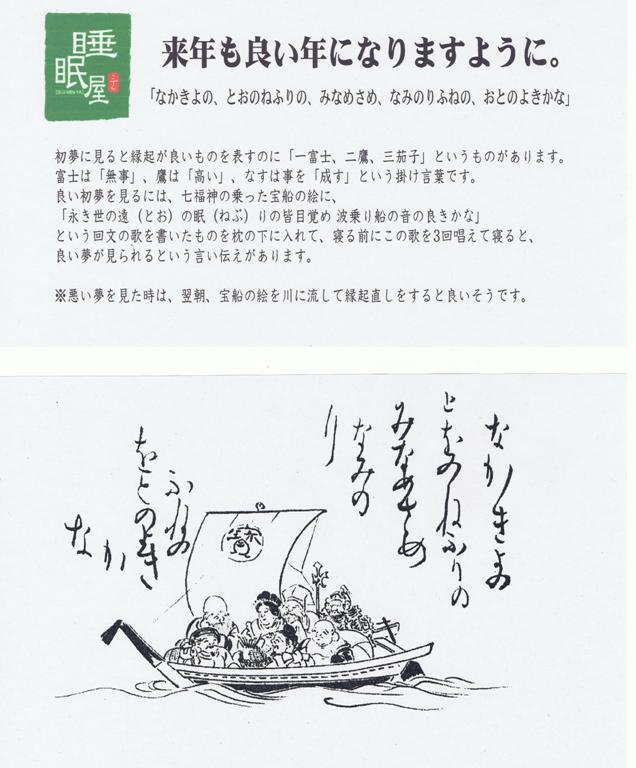 睡眠屋
来年も良い年になりますように。
「なかきよの、とおのねふりの、みなめさめ、なみのりふねの、おとのよきかな」
初夢に見ると縁起が良いものを表すのに「一富士、二鷹、三茄子」というものがあります。
富士は「無事」、鷹は「高い」、なすは事を「成す」という掛け言葉です。
良い初夢を見るには、七福神の乗った宝船の絵に、
「永き世の遠（とお）の眠（ねぶ）りの皆目覚め 波乗り船の音の良きかな」
という回文の歌を書いたものを枕の下に入れて、寝る前にこの歌を3回唱えて寝ると、
良い夢が見られるという言い伝えがあります。
※悪い夢を見た時は、翌朝、宝船の絵を川に流して縁起直しをすると良いそうです。
なかきよの
とをのねふりの
みなめさめ
なみの
り
ふねの
をとのよき
か
な